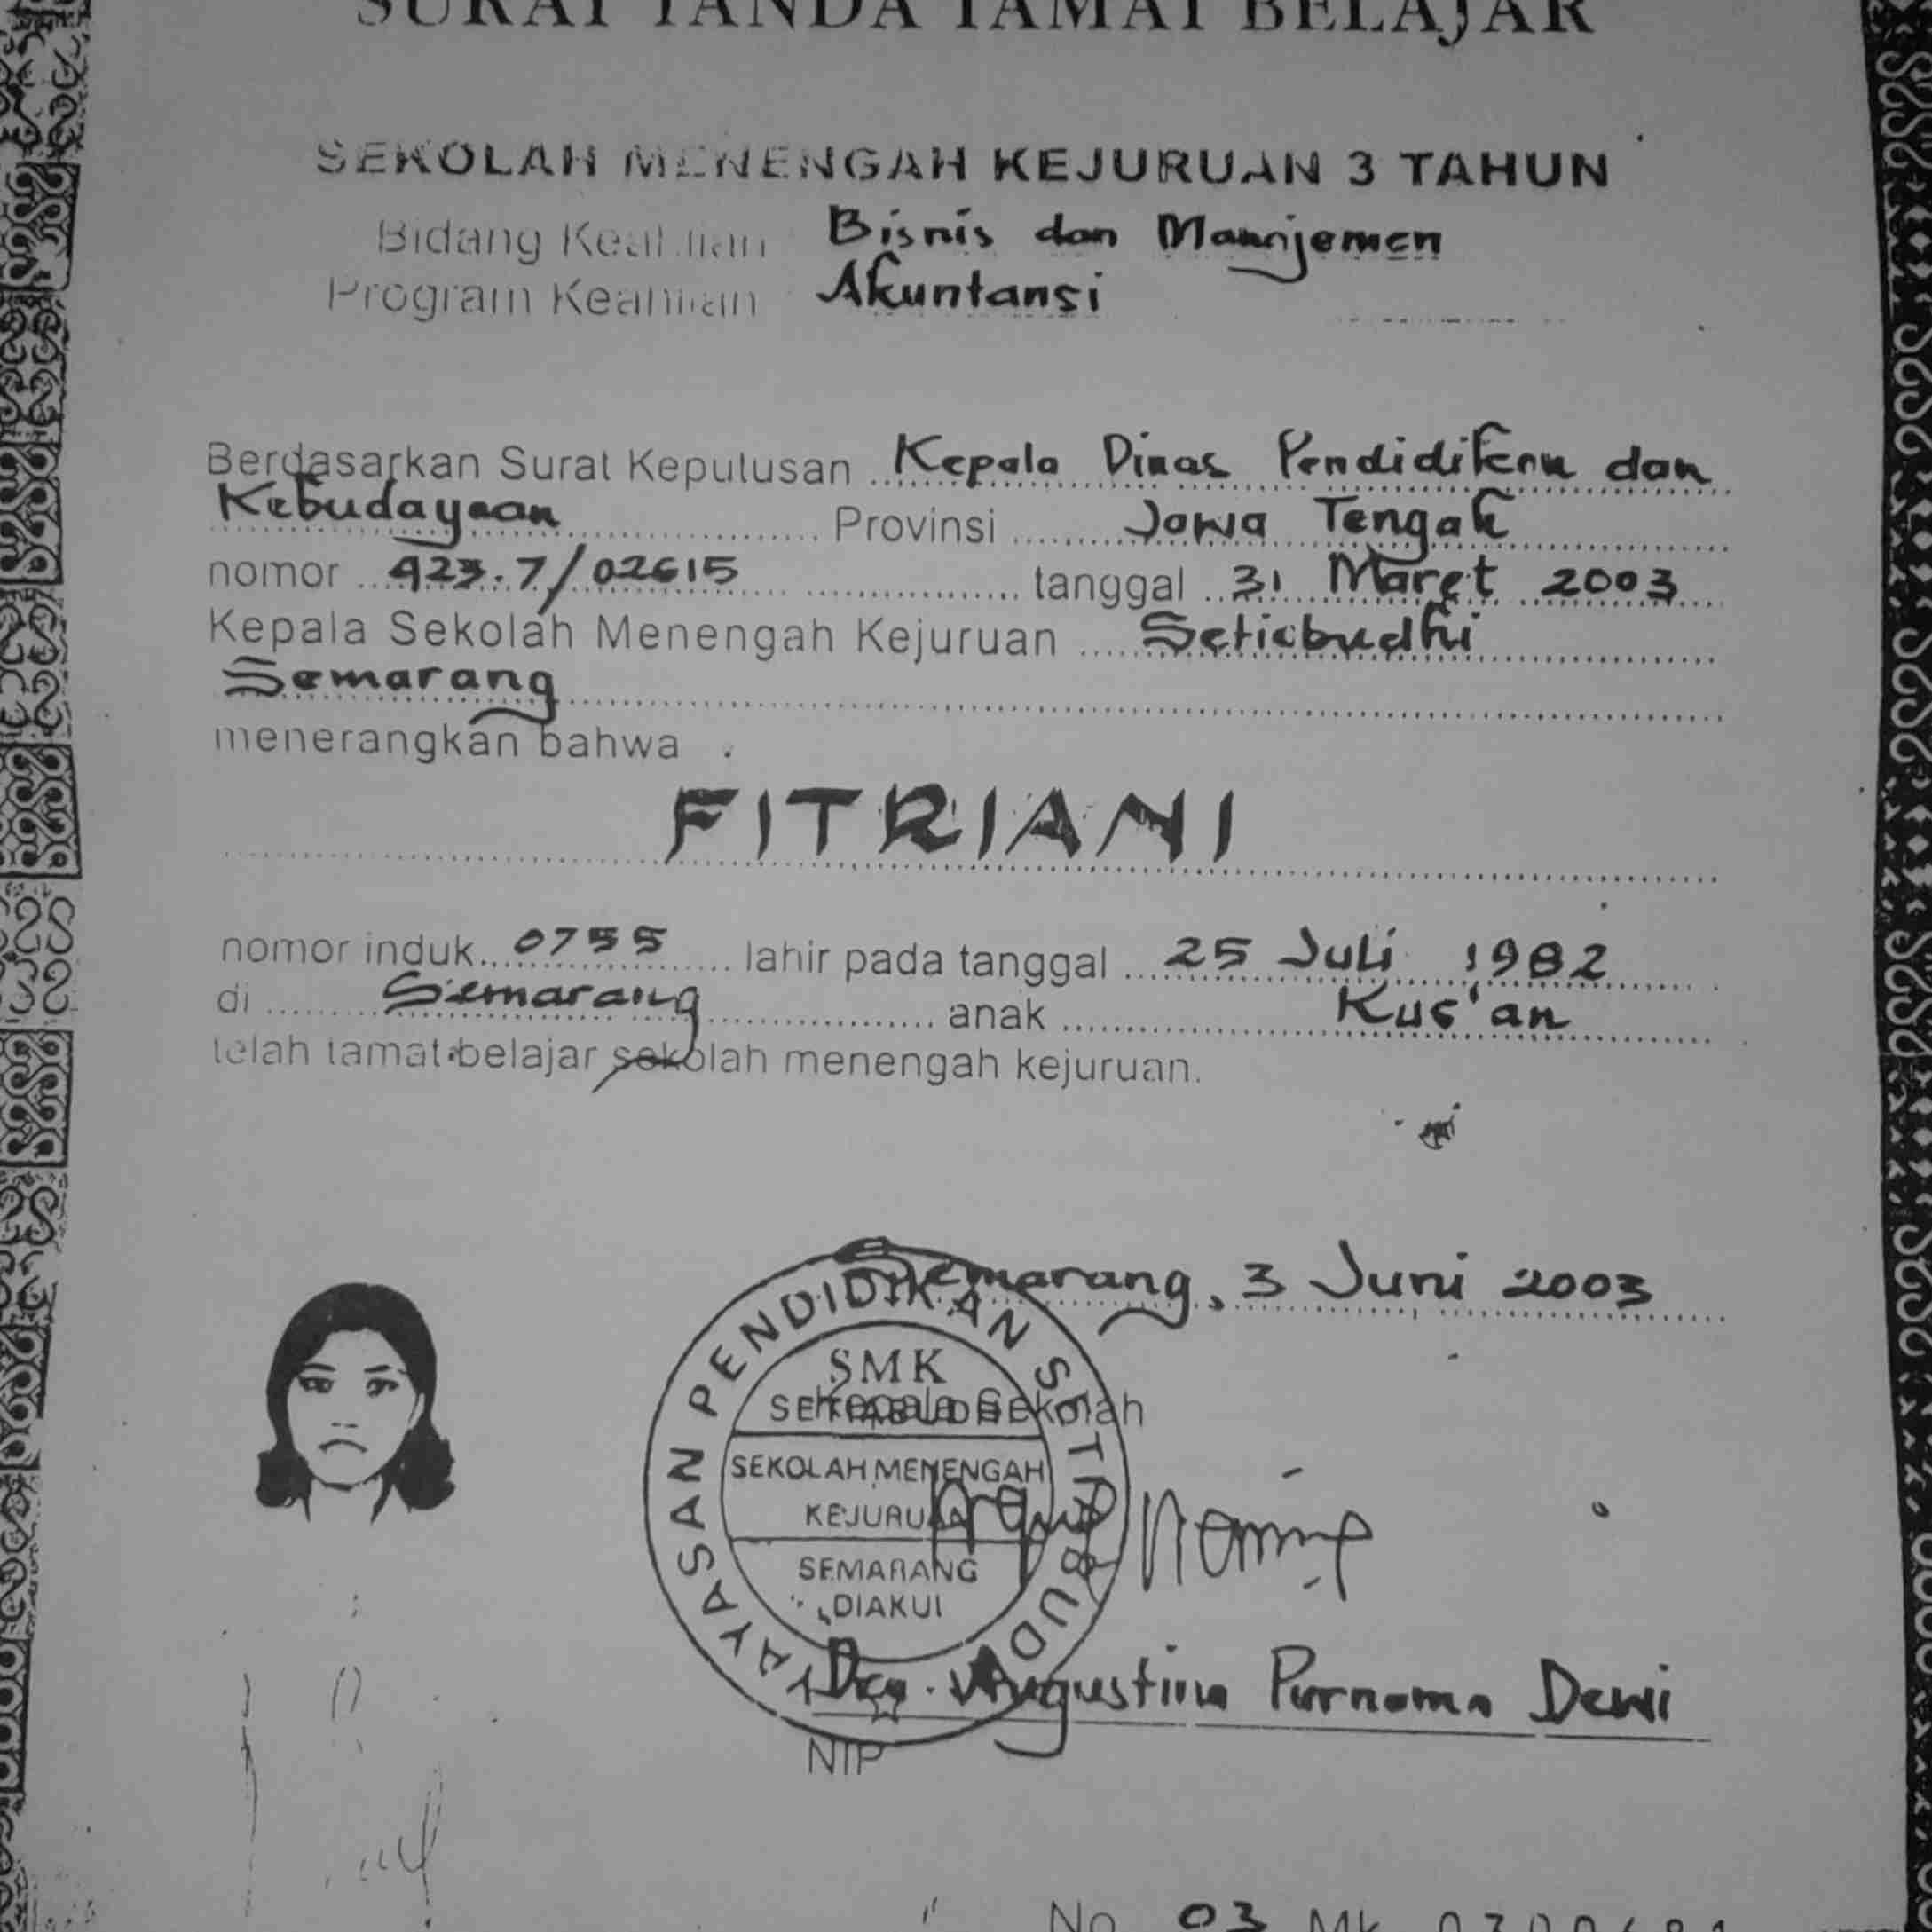 SURAT TANDA TAMAT BELAJAR
SEKOLAH MENENGAH KEJURUAN 3 TAHUN
Bidang Keahlian Bisnis dan Manajemen
Program Keahlian Akuntansi
Berdasarkan Surat Keputusan Kepala Dinas Pendidikan dan
Kebudayaan Provinsi Jawa Tengah
nomor 423.7/02615 tanggal 31 Maret 2003
Kepala Sekolah Menengah Kejuruan Setiabudhi
Semarang
menerangkan bahwa
FITRIANI
nomor induk 0755 lahir pada tanggal 25 Juli 1982
di Semarang anak Kus'an
telah tamat belajar sekolah menengah kejuruan.
Semarang, 3 Juni 2003
Kepala Sekolah
YAYASAN PENDIDIKAN SETIABUDHI
SMK
SETIABUDHI
SEKOLAH MENENGAH
KEJURUAN
SEMARANG
DIAKUI
Dra. Augustina Purnama Dewi
NIP
No 03 Mk